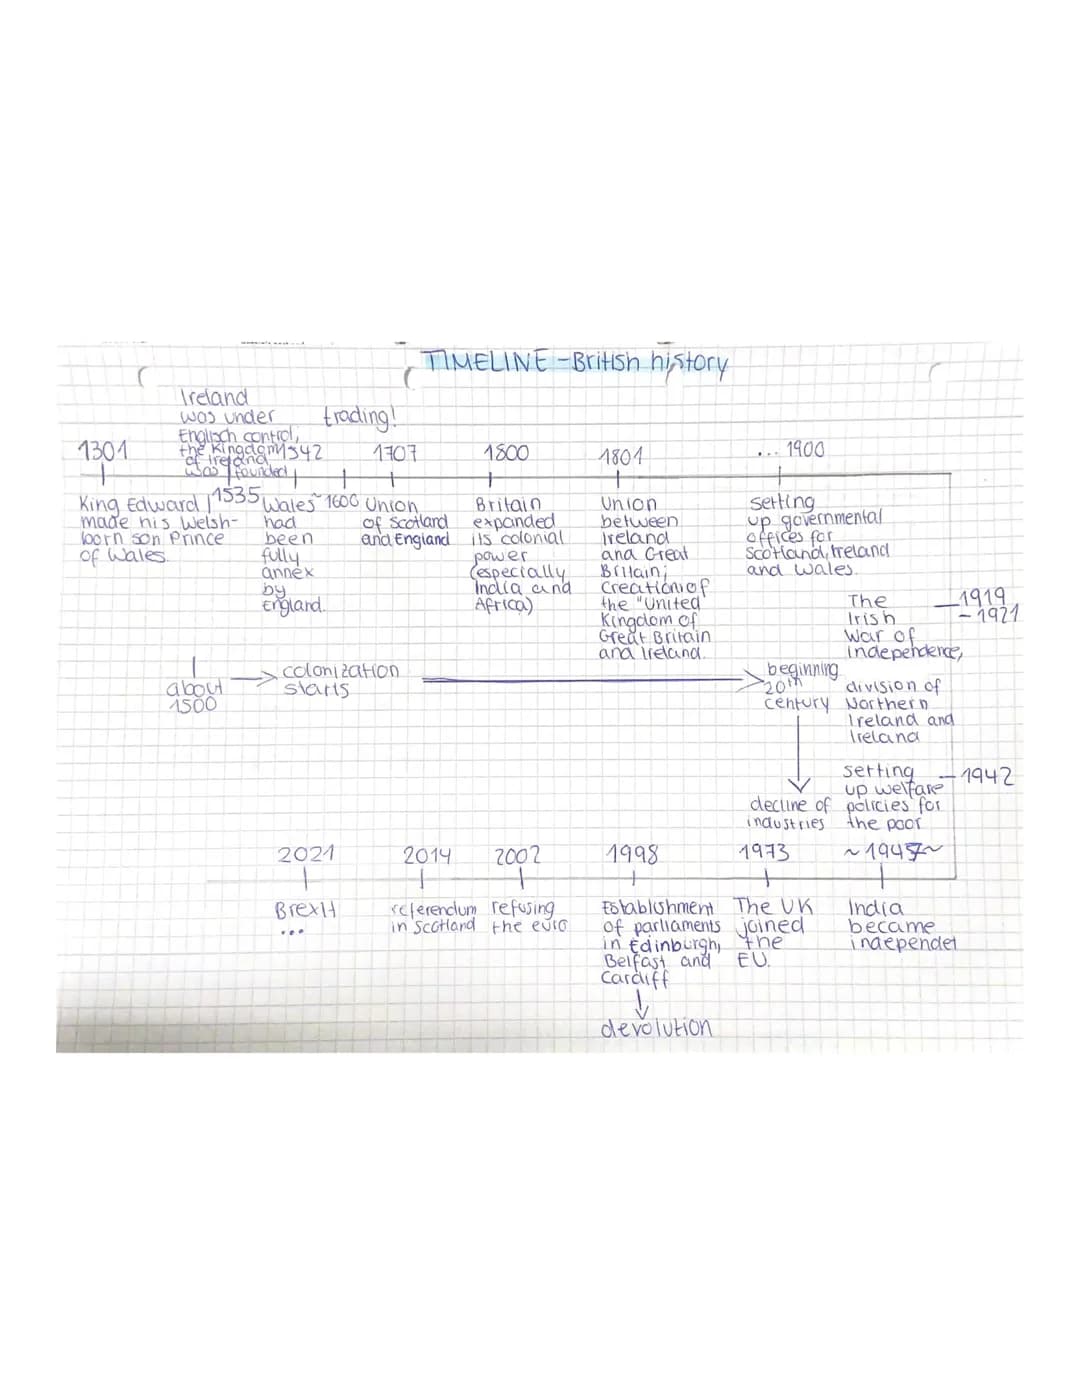 TIMELINE - British history
Ireland
was under
Englisch control,
the Kingdom
of Ireland
was founded
trading!
1301
1542
1707
1800
1801
... 1900
1535
~1600
King Edward I
made his Welsh-
born son Prince
of Wales.
Wales
had
been
fully
annex
by
England.
Union
of Scotland
and England
Britain
expanded
its colonial
power
(especially
India and
Africa)
Union
between
Ireland
and Great
Britain;
Creation of
the "United
Kingdom of
Great Britain
and Ireland.
setting
up governmental
offices for
Scotland, Ireland
and Wales.
The
Irish
War of
Independence,
1919
- 1921
division of
Northern
Ireland and
Ireland
about
1500
colonization
starts
beginning
20th
century
decline of
industries
setting
up welfare
policies for
the poor
1942
2021
2014
2002
1998
1973
~1947~
Brexit
...
referendum
in Scotland
refusing
the euro
Establishment
of parliaments
in Edinburgh,
Belfast and
Cardiff
devolution
The UK
joined
the
EU.
India
became
independet